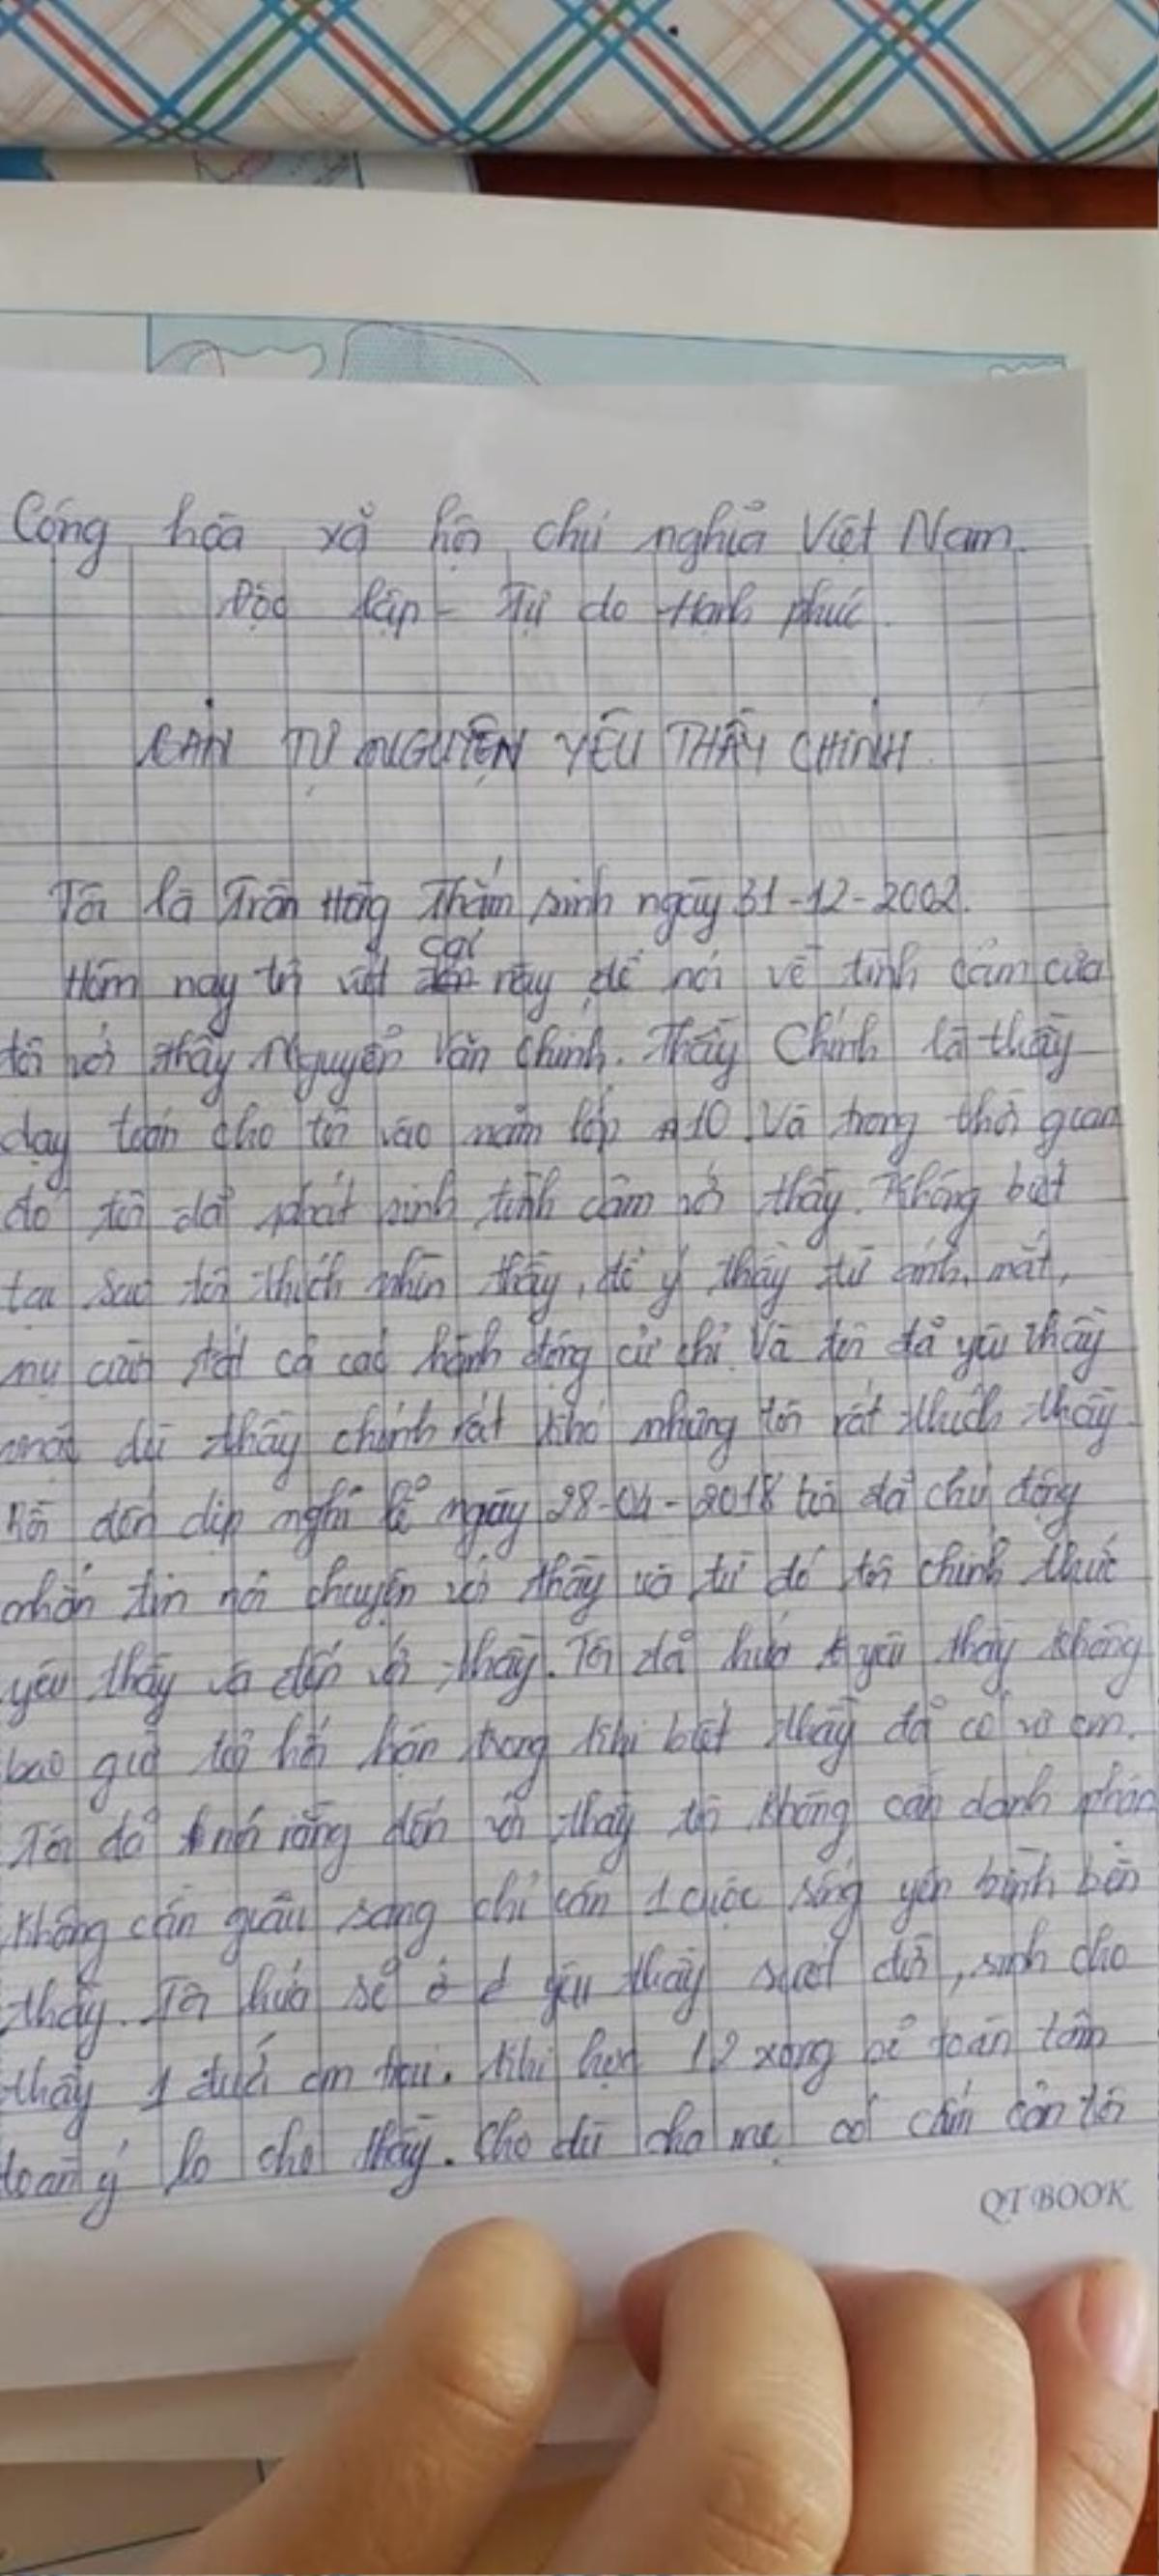 Cộng hòa xã hội chủ nghĩa Việt Nam.
Độc lập - Tự do Hạnh phúc.
BẢN TỰ NGUYỆN YÊU THẦY CHINH
Tôi là Trần Hồng Thắm sinh ngày 31-12-2002.
cái
Hôm nay tôi viết này để nói về tình cảm của
tôi với thầy Nguyễn Văn Chinh. Thầy Chinh là thầy
dạy toán cho tôi vào năm lớp 10. Và trong thời gian
đó tôi đã phát sinh tình cảm với thầy. Không biết
tại sao tôi thích nhìn thầy, để ý thầy từ ánh mắt,
nụ cười tất cả các hành động cử chỉ. Và tôi đã yêu thầy
mặc dù thầy chinh rất khó nhưng tôi rất thích thầy
Rồi đến dịp nghỉ lễ ngày 28-04-2018 tôi đã chủ động
nhắn tin nói chuyện với thầy và từ đó tôi chính thức
yêu thầy và đến với thầy. Tôi đã hứa yêu thầy không
bao giờ hối hận trong khi biết thầy đã có vợ con.
Tôi đã nói rằng đến với thầy tôi không cần danh phận
không cần giàu sang chỉ cần 1 cuộc sống yên bình bên
thầy. Tôi hứa sẽ yêu thầy suốt đời, sinh cho
thầy 1 đứa con trai. Khi học 12 xong sẽ toàn tâm
toàn ý lo cho thầy. Cho dù cha mẹ có cấm cản tôi
QT BOOK